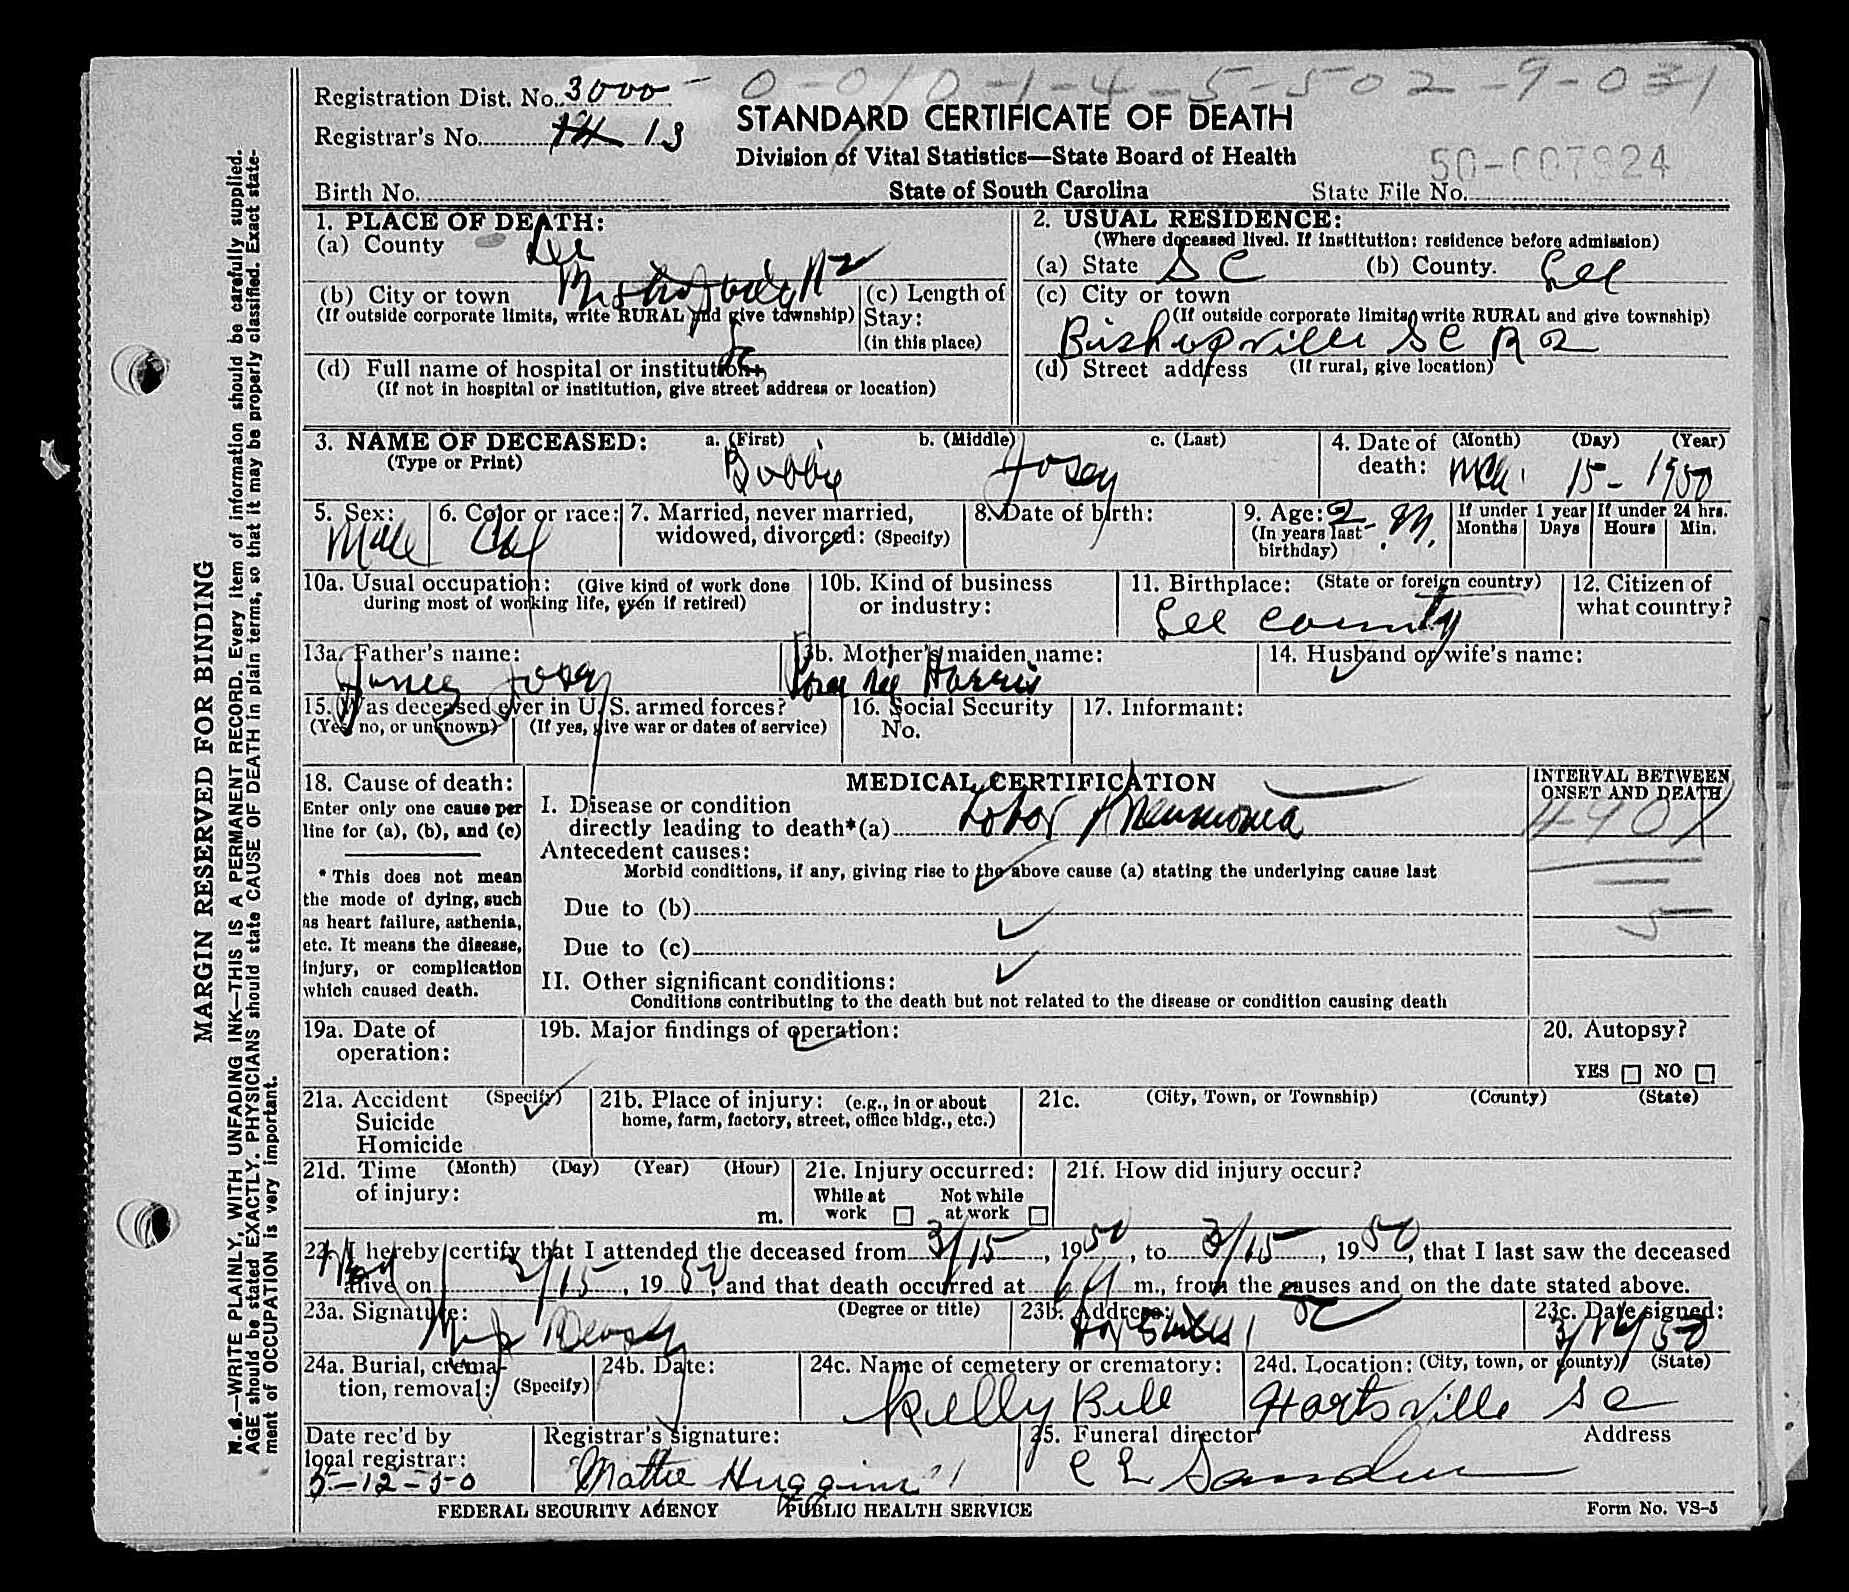 Registration Dist. No. 3000 - 0-010-1-4-5-502-9-031
STANDARD CERTIFICATE OF DEATH
Registrar's No. 14 13
Division of Vital Statistics—State Board of Health
50-007924
Birth No.
State of South Carolina
State File No.
1. PLACE OF DEATH:
(a) County Lee
(b) City or town
(If outside corporate limits, write RURAL and give township)
(c) Length of
Stay:
(in this place)
(d) Full name of hospital or institution:
(If not in hospital or institution, give street address or location)
2. USUAL RESIDENCE:
(Where deceased lived. If institution: residence before admission)
(a) State S C (b) County. Lee
(c) City or town
(If outside corporate limits, write RURAL and give township)
Bishopville S C R 2
(d) Street address (If rural, give location)
3. NAME OF DECEASED: a. (First) b. (Middle) c. (Last)
(Type or Print) Bobbie Josey
4. Date of (Month) (Day) (Year)
death: Mch. 15- 1950
5. Sex:
Male
6. Color or race:
Col
7. Married, never married,
widowed, divorced: (Specify)
8. Date of birth:
9. Age: 2 M.
(In years last
birthday)
If under 1 year
Months Days
If under 24 hrs.
Hours Min.
10a. Usual occupation: (Give kind of work done
during most of working life, even if retired)
10b. Kind of business
or industry:
11. Birthplace: (State or foreign country)
Lee County
12. Citizen of
what country?
13a. Father's name:
James Josey
13b. Mother's maiden name:
Harris
14. Husband or wife's name:
15. Was deceased ever in U. S. armed forces?
(Yes, no, or unknown) (If yes, give war or dates of service)
16. Social Security
No.
17. Informant:
18. Cause of death:
Enter only one cause per
line for (a), (b), and (c)
* This does not mean
the mode of dying, such
as heart failure, asthenia,
etc. It means the disease,
injury, or complication
which caused death.
MEDICAL CERTIFICATION
I. Disease or condition
directly leading to death*(a) Lobar Pneumonia
Antecedent causes:
Morbid conditions, if any, giving rise to the above cause (a) stating the underlying cause last
Due to (b)
Due to (c)
II. Other significant conditions:
Conditions contributing to the death but not related to the disease or condition causing death
INTERVAL BETWEEN
ONSET AND DEATH
490X
5
19a. Date of
operation:
19b. Major findings of operation:
20. Autopsy?
YES NO
21a. Accident (Specify)
Suicide
Homicide
21b. Place of injury: (e.g., in or about
home, farm, factory, street, office bldg., etc.)
21c. (City, Town, or Township) (County) (State)
21d. Time (Month) (Day) (Year) (Hour)
of injury: m.
21e. Injury occurred:
While at work Not while at work
21f. How did injury occur?
22. I hereby certify that I attended the deceased from 3/15, 1950, to 3/15, 1950, that I last saw the deceased
alive on 3/15, 1950, and that death occurred at m., from the causes and on the date stated above.
23a. Signature: (Degree or title)
23b. Address:
SC
23c. Date signed:
3/16/50
24a. Burial, crema-
tion, removal: (Specify)
24b. Date:
24c. Name of cemetery or crematory:
Kelly Bell
24d. Location: (City, town, or county) (State)
Hartsville S C
Date rec'd by
local registrar:
5-12-50
Registrar's signature:
Mattie Huggins
25. Funeral director Address
C L
FEDERAL SECURITY AGENCY PUBLIC HEALTH SERVICE Form No. VS-5
MARGIN RESERVED FOR BINDING
N.B.—WRITE PLAINLY, WITH UNFADING INK—THIS IS A PERMANENT RECORD. Every item of information should be carefully supplied.
AGE should be stated EXACTLY. PHYSICIANS should state CAUSE OF DEATH in plain terms, so that it may be properly classified. Exact state-
ment of OCCUPATION is very important.